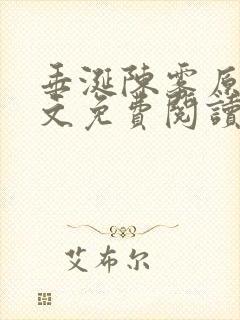 垂涎陳雾原
文免費閱讀
艾布尔